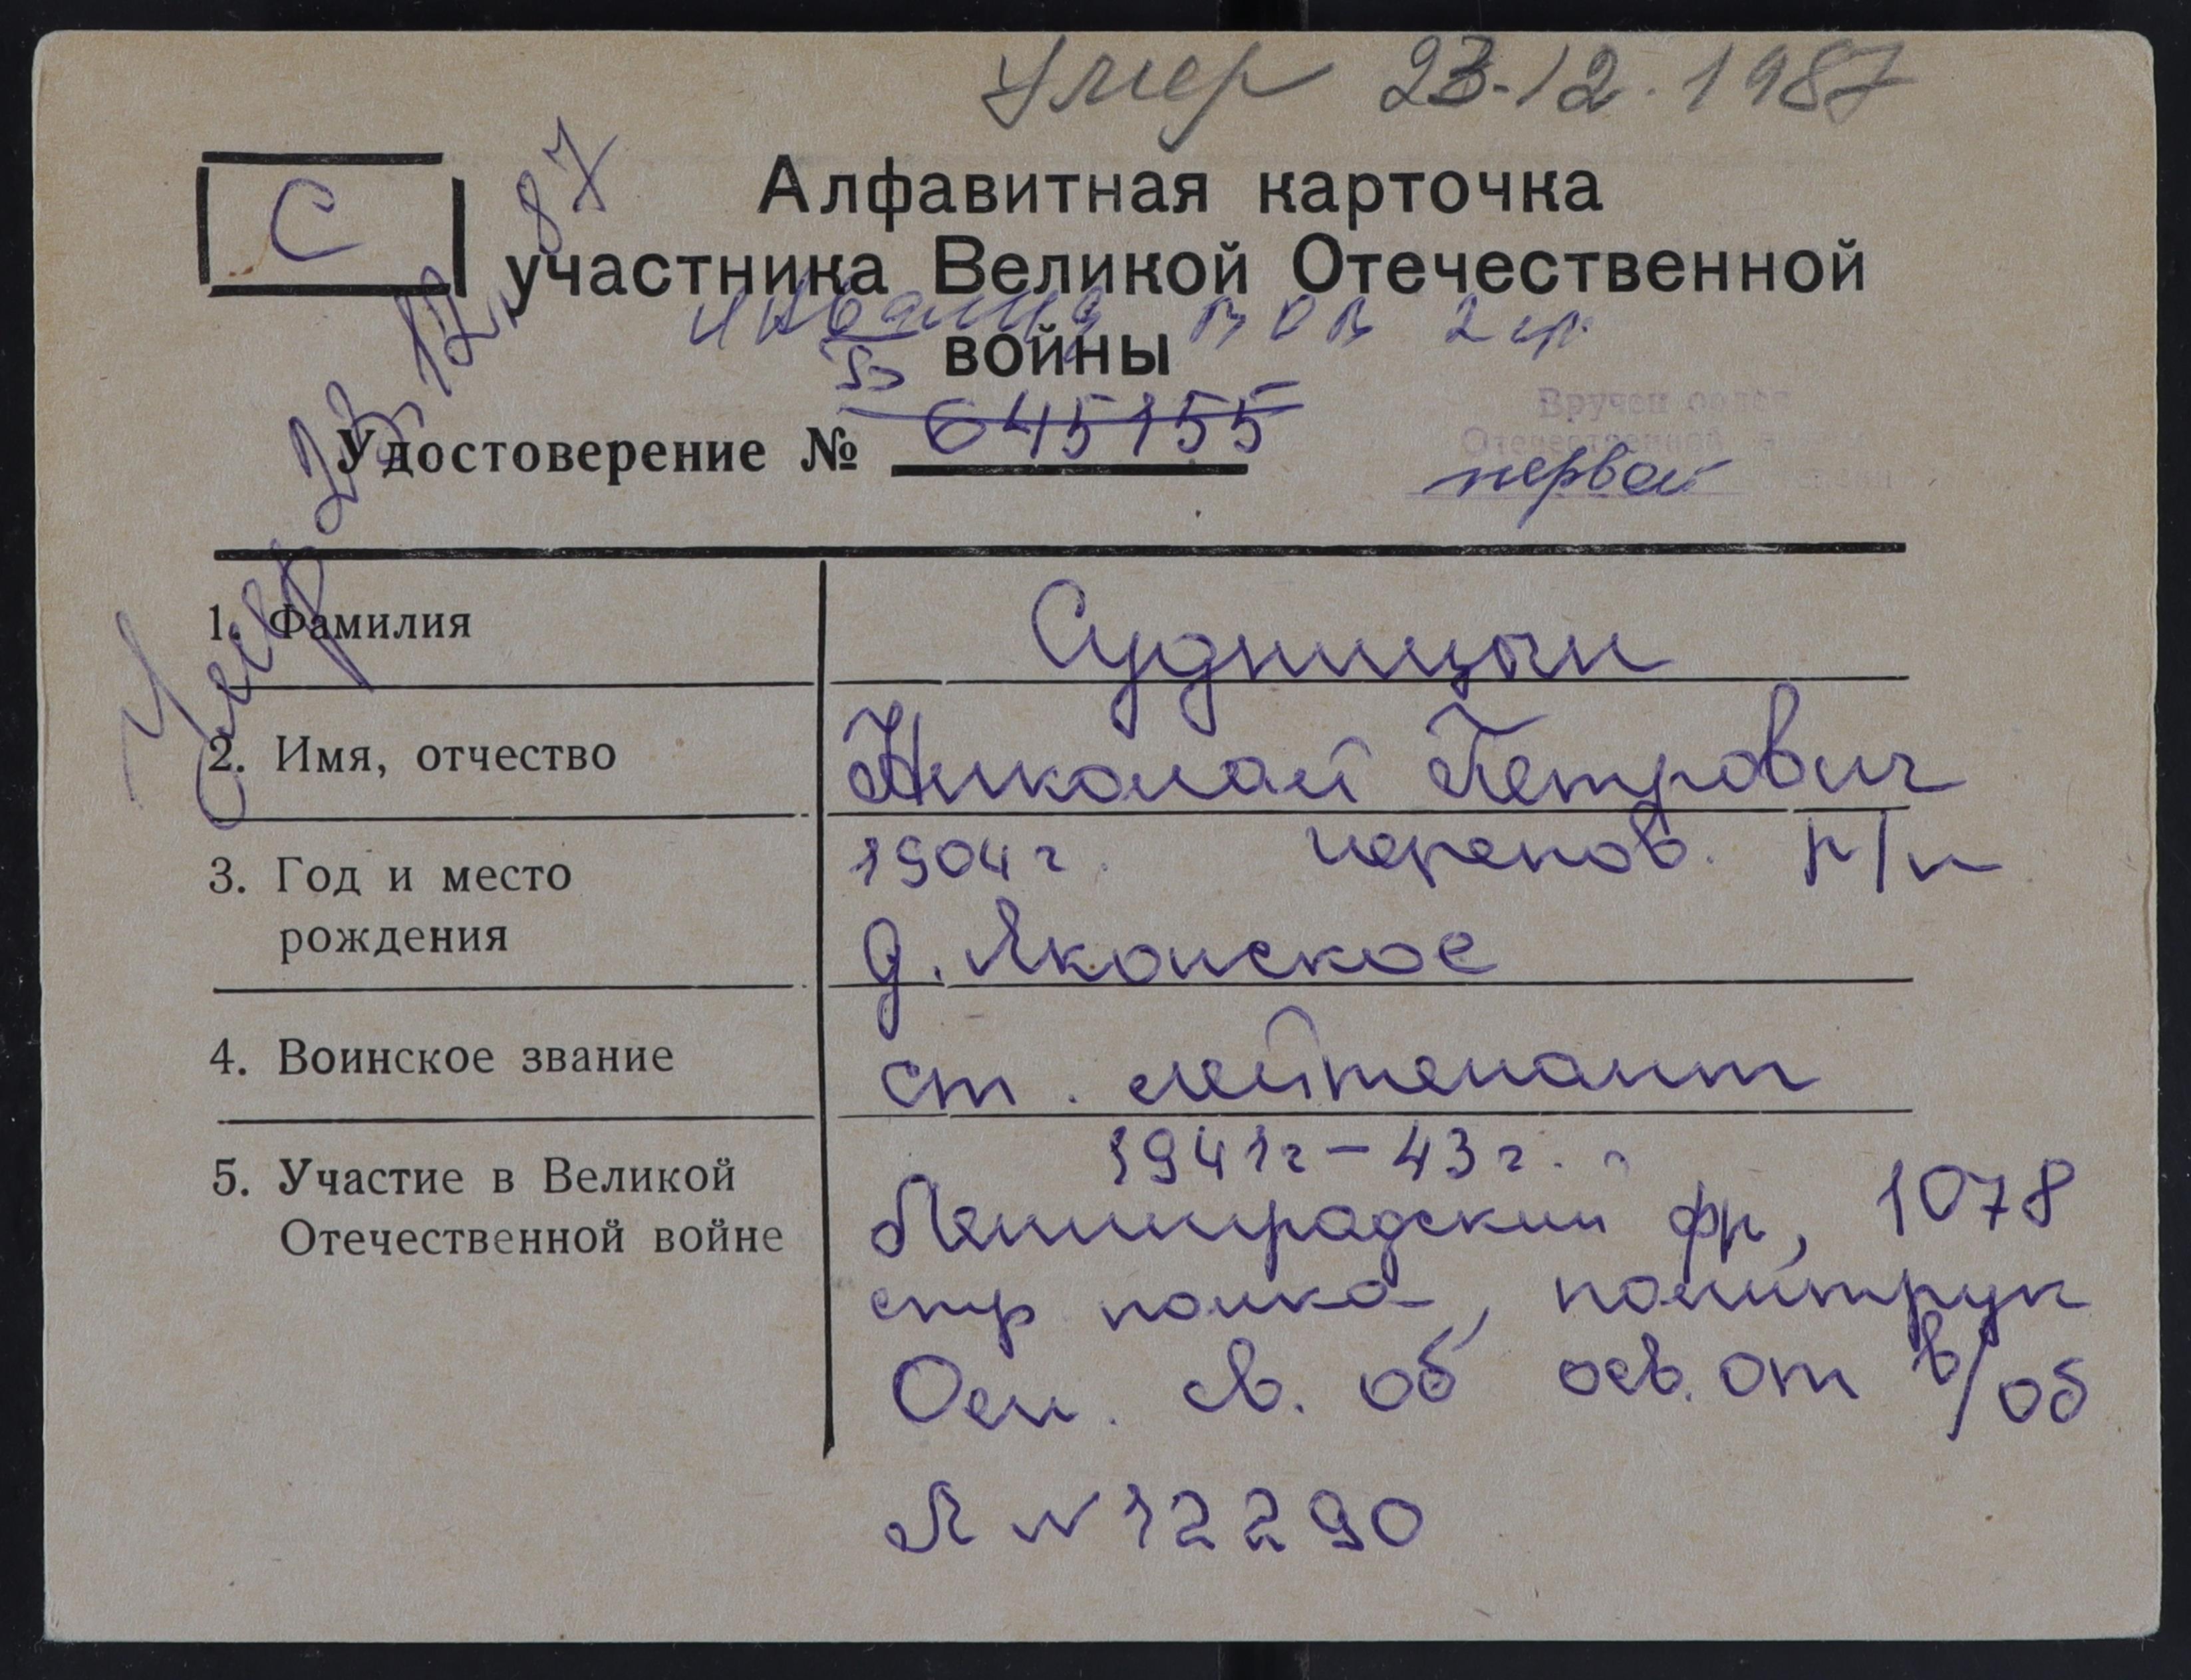 Умер 23.12.1987
С
Умер 23.12.87
Алфавитная карточка
участника Великой Отечественной
инвалид ВОВ 2 гр.
войны
Удостоверение № 645155
Вручен орден
Отечественной войны
первой степени
1. Фамилия Судницын
2. Имя, отчество Николай Петрович
3. Год и место 1904 г. черепов. р/н
рождения д. Яконское
4. Воинское звание ст. лейтенант
1941г - 43г.
5. Участие в Великой Ленинградский фр, 1078
Отечественной войне стр полка, политрук
Осн. св. об осв. от в/об
Л N 12290